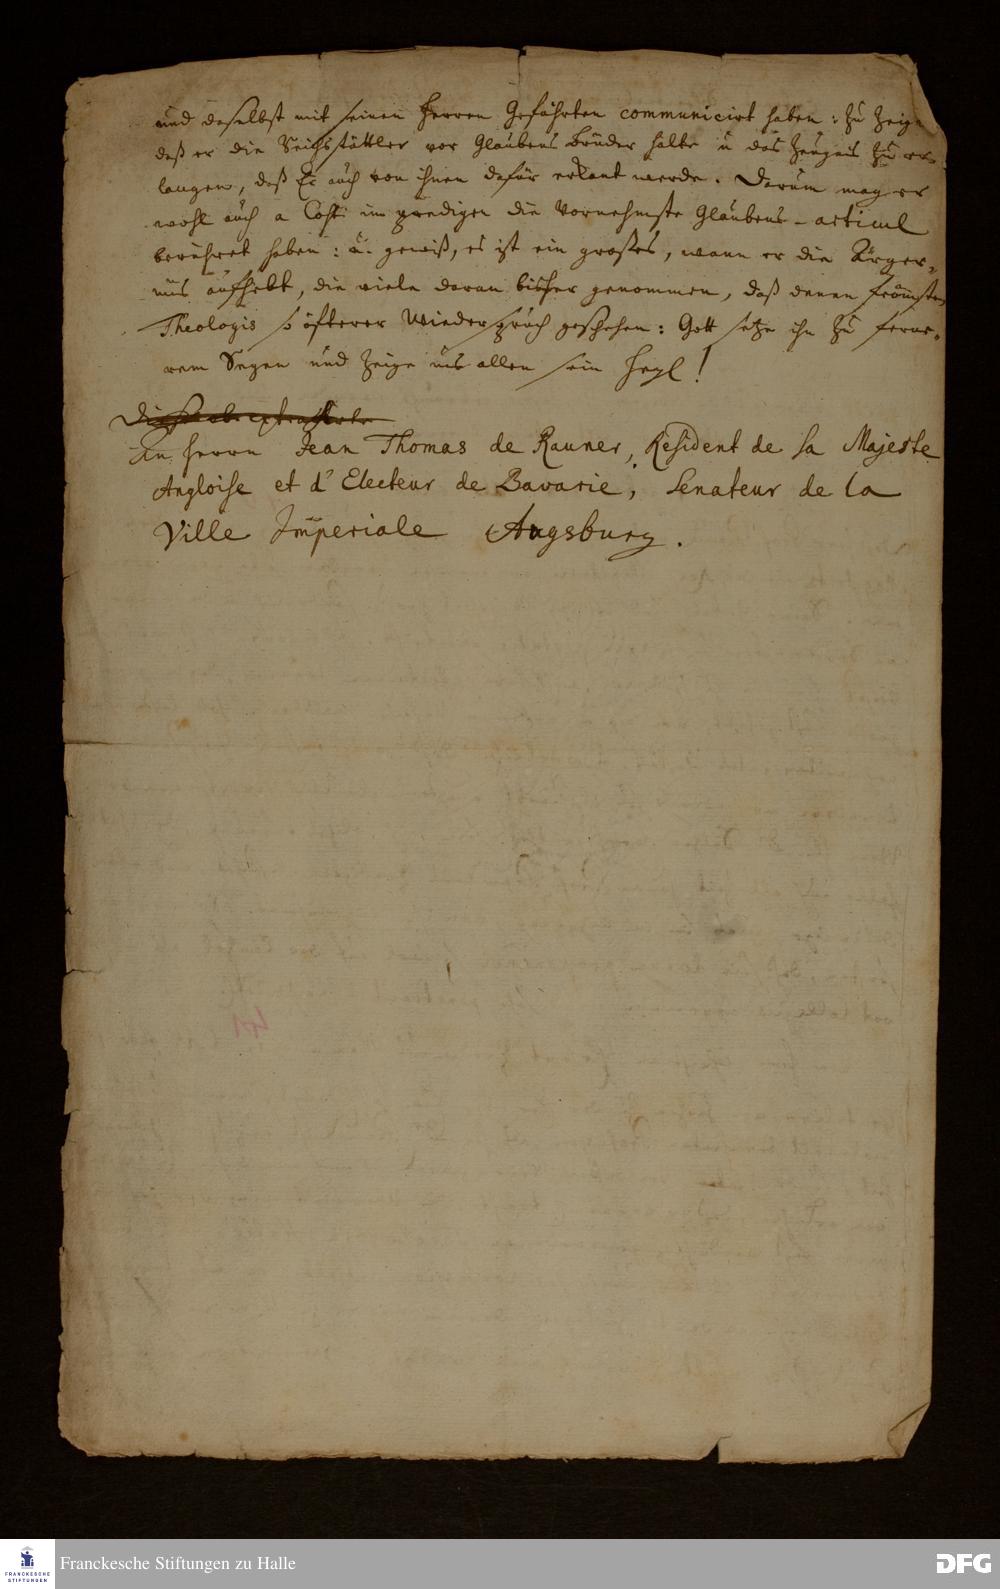 und daselbst mit seinen Herren Gefährten communicirt haben: zu zeigen
daß er die Reichsstättler vor Glaubens brüder halte u das Zeugnis zu er¬
langen, daß Er auch von ihnen dafür erkant werde. Darum mag er
wohl auch a Cost. im predigen die Vornehmste Glaubens-articul
berühret haben: u. gewiß, es ist ein grosses, wann er die Ärger¬
nis aufhebt, die viele daran bißher genommen, daß denen frömsten
Theologis so öfterer Wiederspruch geschehen: Gott setze ihn zu ferne¬
rem Segen und zeige uns allen sein Heyl!
An Herrn Jean Thomas de Rauner, Resident de sa Majeste
Angloise et d'Electeur de Bavarie, Senateur de la
Ville Imperiale Augsburg.
41
Franckesche Stiftungen zu Halle
FRANCKESCHE
STIFTUNGEN
DFG